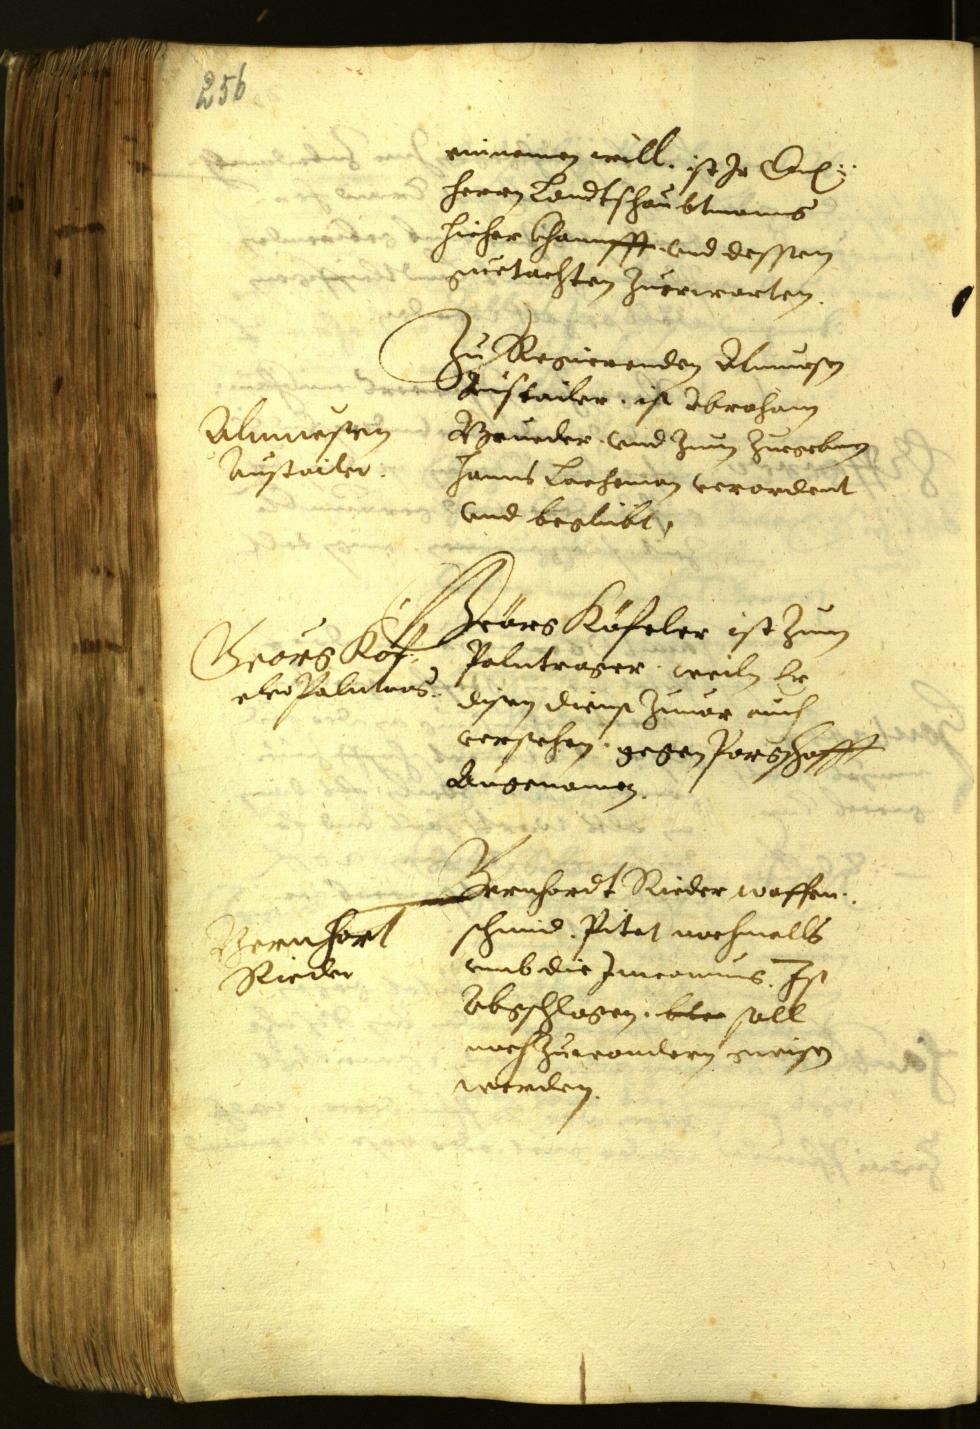 256
einnemen will. ist Ir Gn:
herrn Landtshaubtmans
hieher khunfft und dessen
guetachten zuerwarten.
Zu Regierenden Almuesen
Austailer. ist Abraham
Prueder. und zum zuegeben
Hanns Lachman verordent
und beglübt.
Almuesen
Austailer.
Geörg Köfeler ist zum
Palntrager. weiln Er
disen dienst zuuor auch
versehen. gegen Porgschafft
Angenomen.
Georg Köf-
eler Palntrag:
Bernhardt Rieder waffen-
schmid. Pitet nochmalls
umb die Inwonung. Ist
Abgschlagen. soll
noch zu wandern gwisen
werden.
Bernhart
Rieder